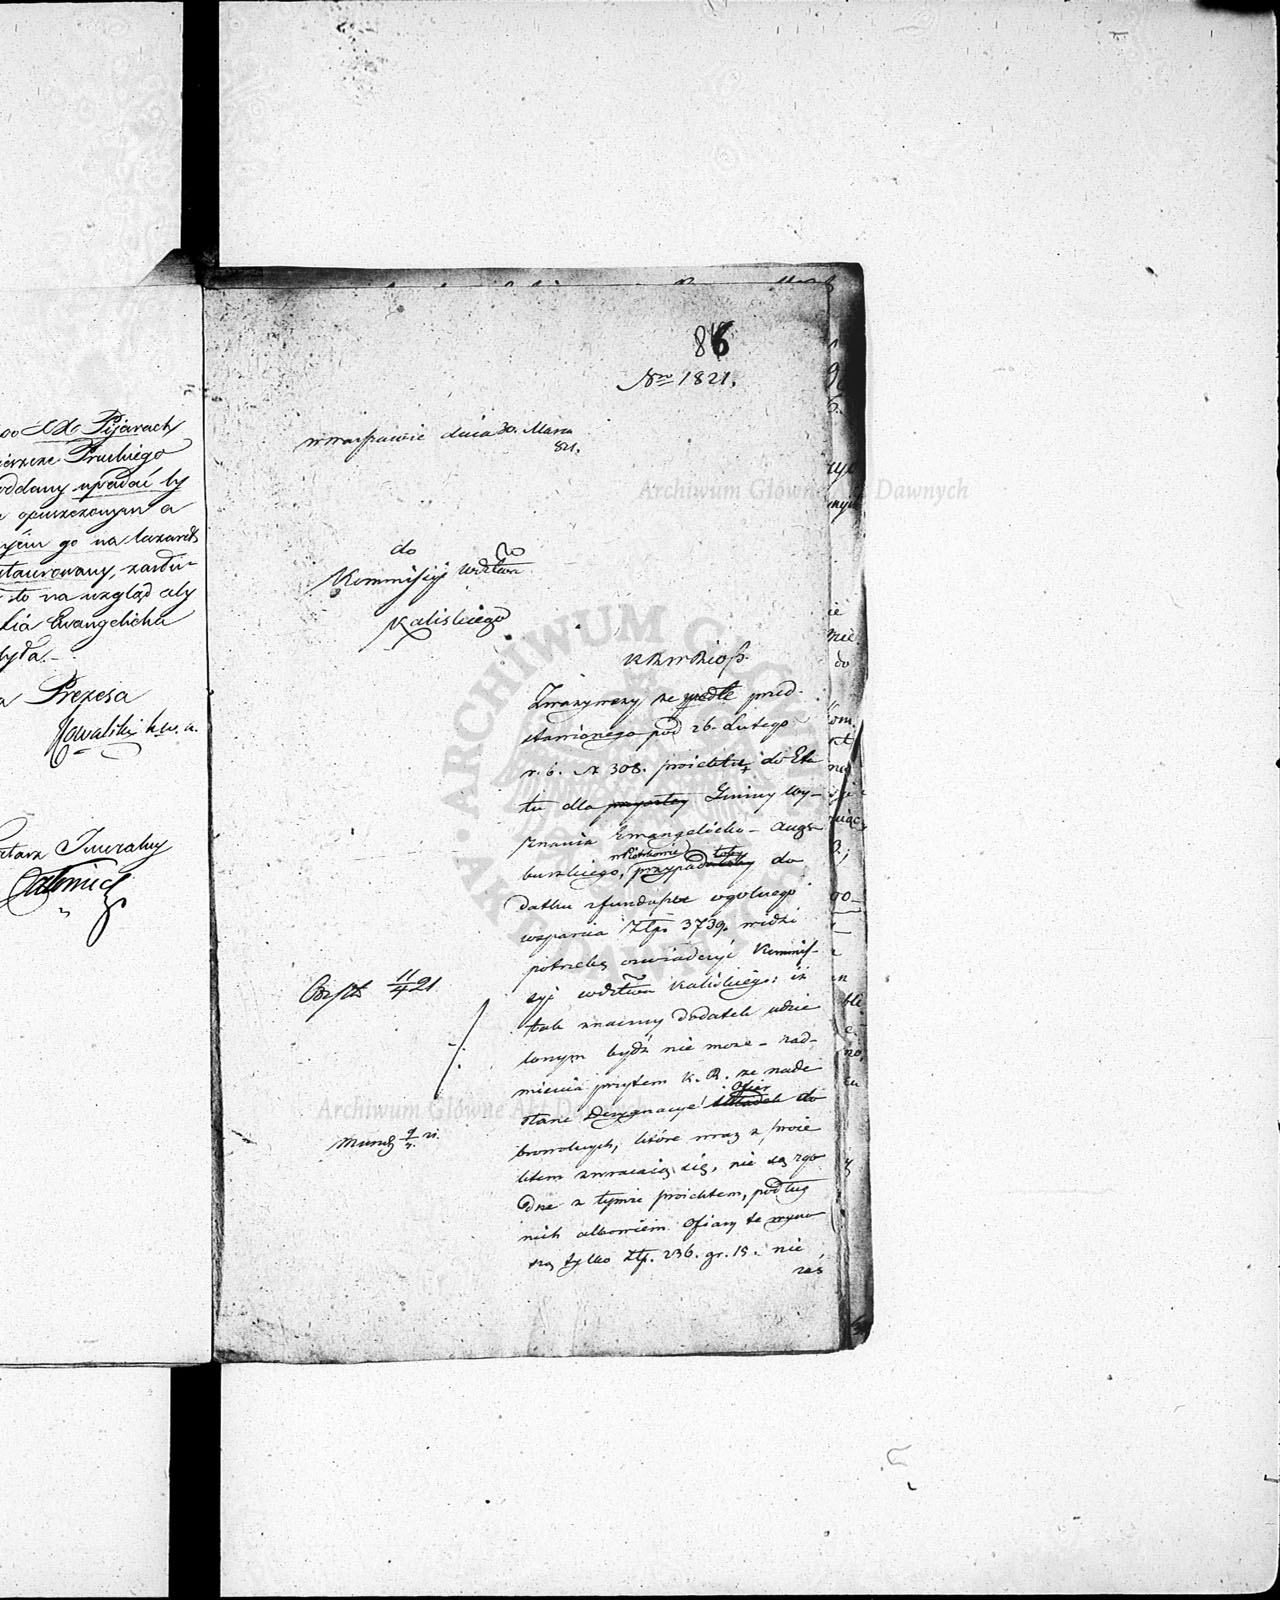 oo XX Pijarach
Pruskiego
oddany upadać by
opuszczonym a
go na lazaret
staurowany, zasłu-
to na wzgląd aby
Ewangelicka
była.-
Prezesa
Kowalski
Jeneralny
86
Nro 1821.
w Warszawie dnia 30. Marca
821.
do
Kommissyi Wdztwa
Kaliskiego
K R W R i O P.
Zważywszy że wedle przed-
stawionego pod 26. Lutego
r. b. N 308. proiektu do Eta
tu dla Gminy Wy-
znania Ewangelicko-Augs
burskiego, w Piotrkowie, do
datku z funduszu ogólnego
wsparcia Złp. 3739. widzi
potrzebę oświadczyć Kommis-
syi wdztwa Kaliskiego; iż
tak znaczny dodatek udzie
lonym bydź nie może - nad-
mienia przytem K. R. że nade
słane Dezygnacye Ofiar do
browolnych, które wraz z proie
ktem zwracaią się, nie są zgo
dne z tymże proiektem, podług
nich albowiem Ofiary te wyno
szą tylko Złp. 236. gr. 15. nie
zaś
11/4 21
Archiwum Główne Akt Dawnych
ARCHIWUM GŁÓWNE AKT DAWNYCH
Archiwum Główne Akt Dawnych